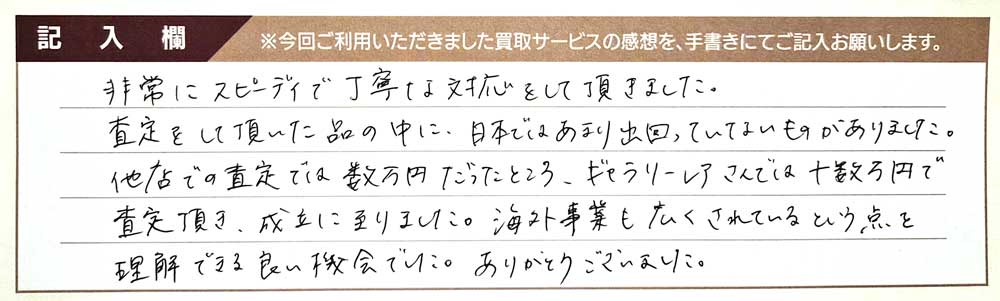 記入欄 ※今回ご利用いただきました買取サービスの感想を、手書きにてご記入お願いします。
非常にスピーディで丁寧な対応をして頂きました。
査定をして頂いた品の中に、日本ではあまり出回っていないものがありました。
他店での査定では数万円だったところ、ギャラリーレアさんでは十数万円で
査定頂き、成立に至りました。海外事業も広くされているという点を
理解できる良い機会でした。ありがとうございました。